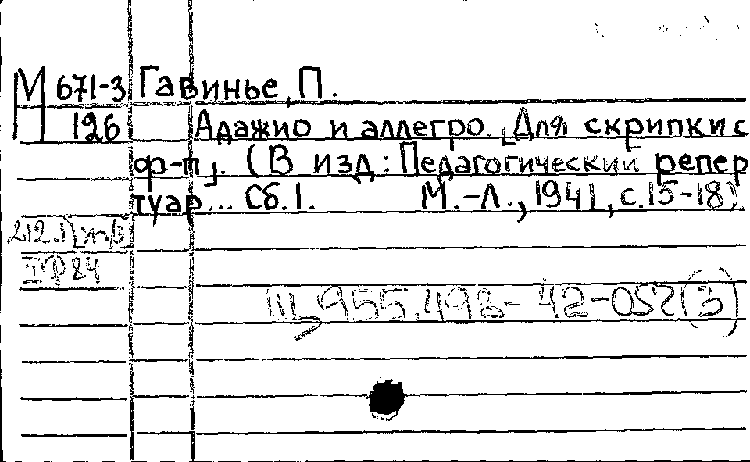 М 671-3 Гавинье, П.
126 Адажио и аллегро. [Для скрипки с
ф-п]. (В изд: Педагогический репер
туар... Сб.1. М.-Л., 1941, с.15-18)
84
955.498-42-052(3)